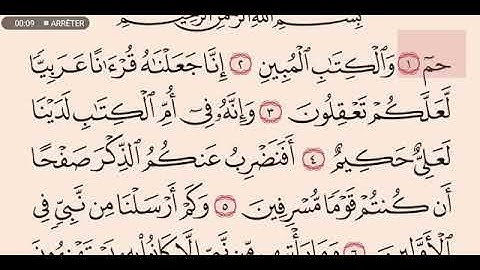 00:09 ■ ARRÊTER
بِسْمِ اللَّهِ الرَّحْمَٰنِ الرَّحِيمِ
حمٓ ١ وَٱلْكِتَٰبِ ٱلْمُبِينِ ٢ إِنَّا جَعَلْنَٰهُ قُرْءَٰنًا عَرَبِيًّا
لَّعَلَّكُمْ تَعْقِلُونَ ٣ وَإِنَّهُۥ فِىٓ أُمِّ ٱلْكِتَٰبِ لَدَيْنَا
لَعَلِىٌّ حَكِيمٌ ٤ أَفَنَضْرِبُ عَنكُمُ ٱلذِّكْرَ صَفْحًا
أَن كُنتُمْ قَوْمًا مُّسْرِفِينَ ٥ وَكَمْ أَرْسَلْنَا مِن نَّبِىٍّ فِى
ٱلْأَوَّلِينَ ٦ وَمَا يَأْتِيهِم مِّن نَّبِىٍّ إِلَّا كَانُوا۟ بِهِۦ يَسْتَهْزِءُونَ